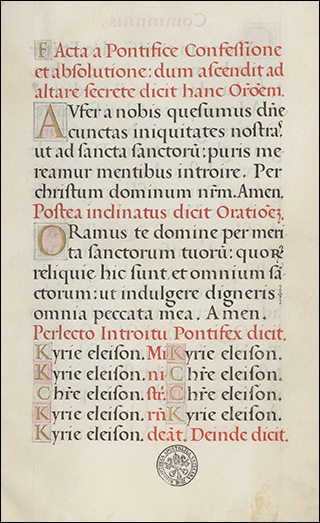 FActa a Pontifice Confessione
et absolutione: dum ascendit ad
altare secrete dicit hanc Orõem.
AVfer a nobis quesumus dñe
cunctas iniquitates nostraꝝ
ut ad sancta sanctorũ: puris me
reamur mentibus introire. Per
christum dominum nrm̃. Amen.
Postea inclinatus dicit Oratiõeȝ.
ORamus te domine per meri
ta sanctorum tuorũ: quorꝝ
reliquie hic sunt et omnium sã
ctorum: ut indulgere digneris
omnia peccata mea. Amen.
Perlecto Introitu Pontifex dicit.
Kyrie eleison. Mi Kyrie eleison.
Kyrie eleison. ni Chr̃e eleison.
Chr̃e eleison. str̃. Chr̃e eleison.
Kyrie eleison. rñ Kyrie eleison.
Kyrie eleison. deãt. Deinde dicit.